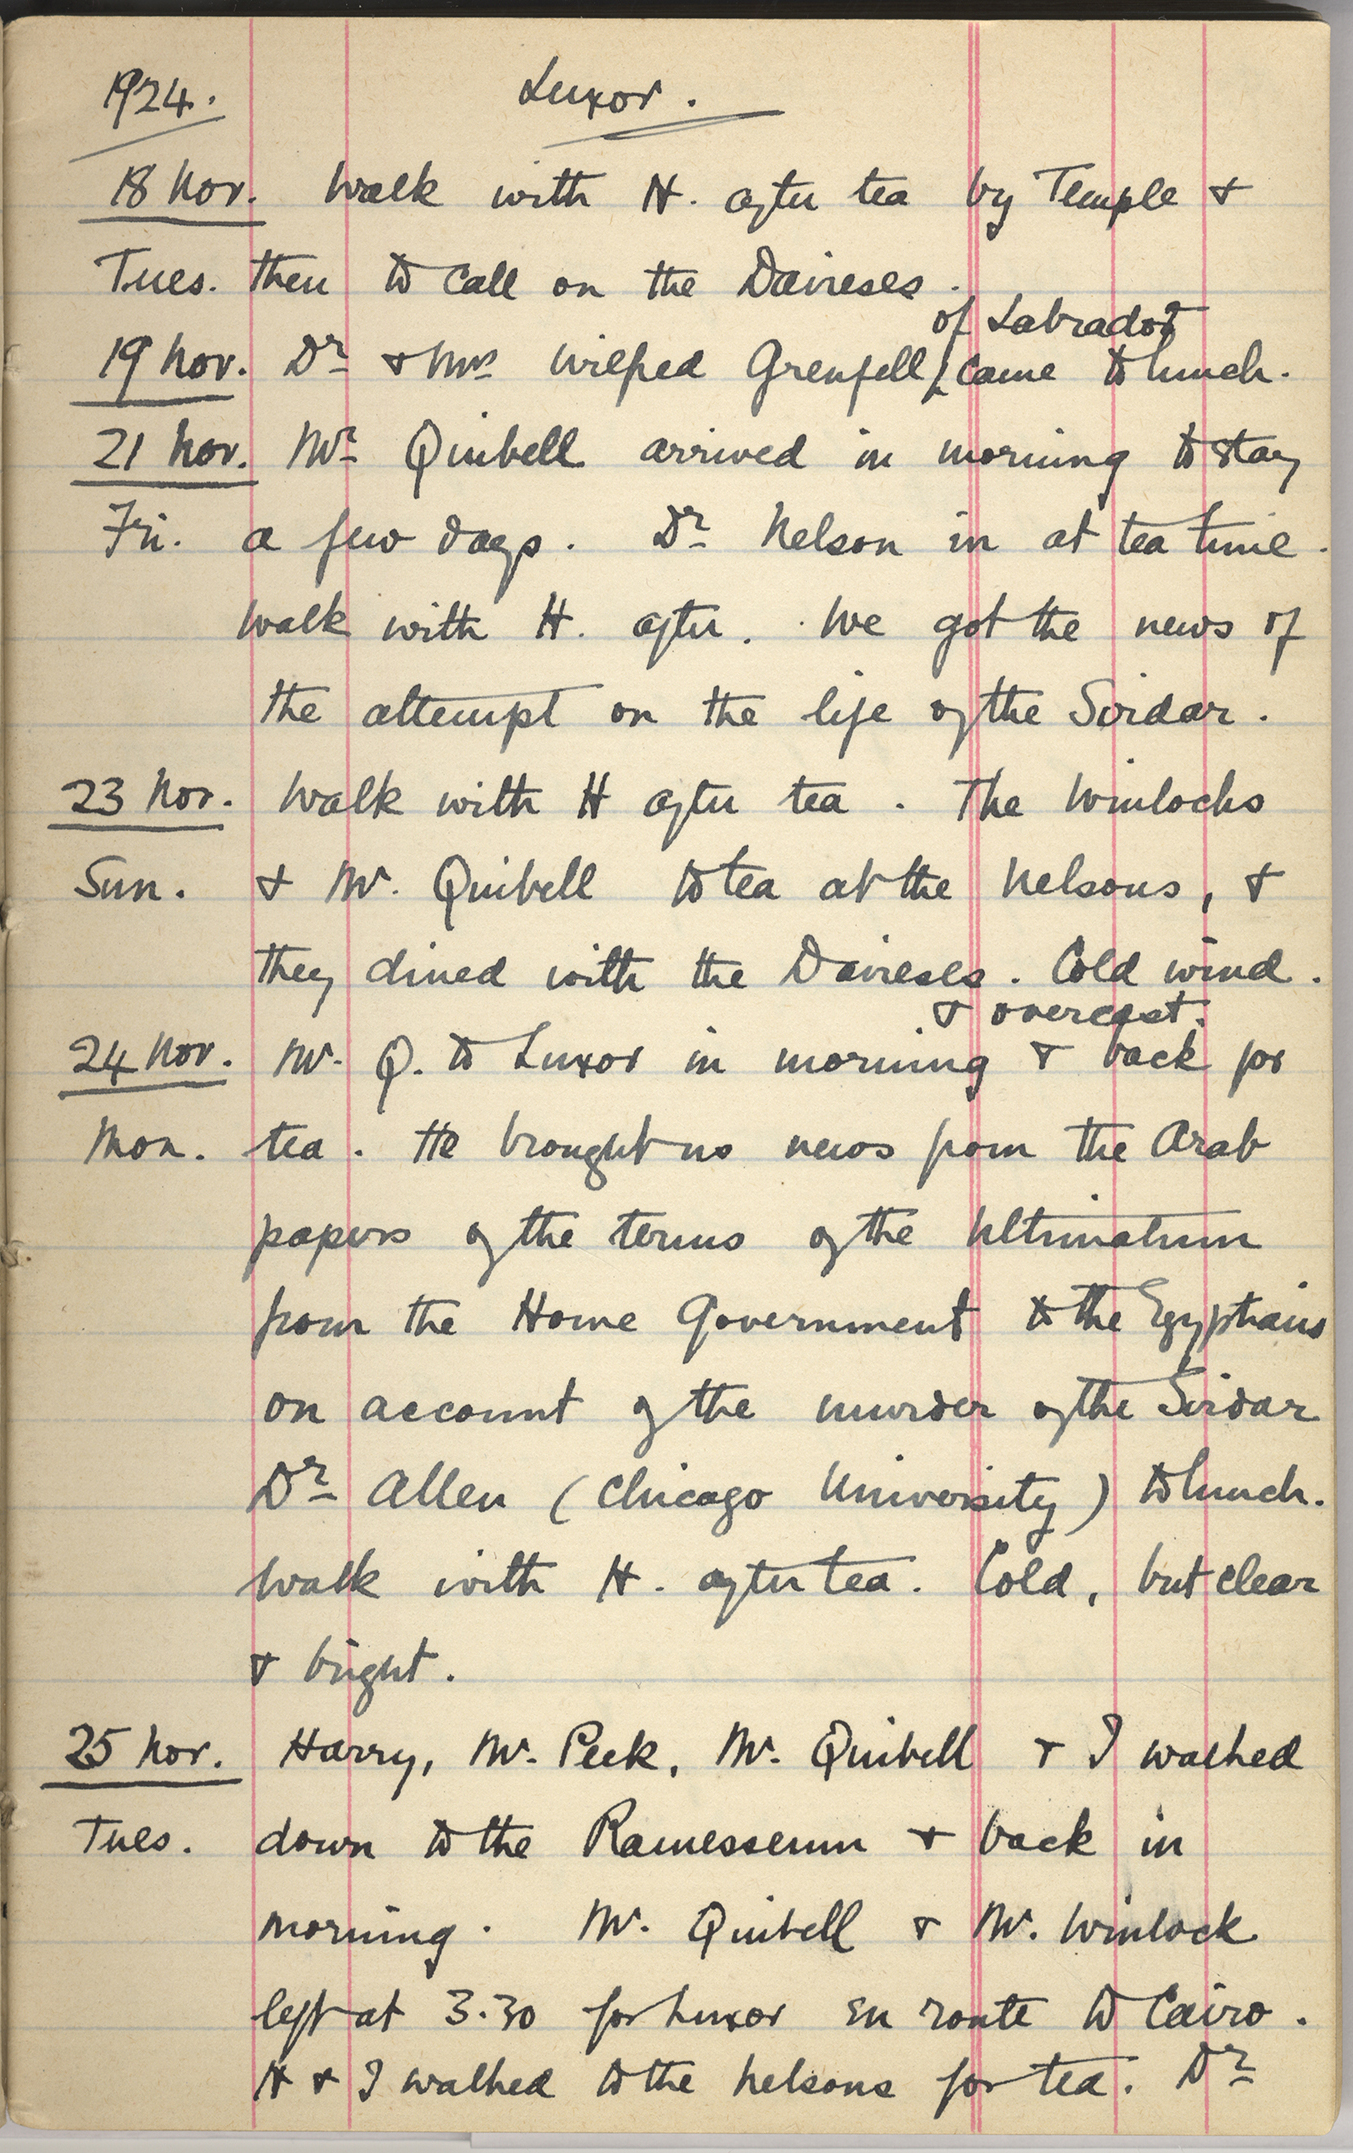 1924. Luxor.
18 Nov. Walk with H. after tea by Temple &
Tues. then to call on the Davieses.
of Labrador
19 Nov. Dr & Mrs Wilfred Grenfell came to lunch.
21 Nov. Mr Quibell arrived in morning to stay
Fri. a few days. Dr Nelson in at tea time.
Walk with H. after. We got the news of
the attempt on the life of the Sirdar.
23 Nov. Walk with H after tea. The Winlocks
Sun. & Mr. Quibell to tea at the Nelsons, &
they dined with the Davieses. Cold wind.
& overcast.
24 Nov. Mr. Q. to Luxor in morning & back for
Mon. tea. He brought us news from the Arab
papers of the terms of the Ultimatum
from the Home Government to the Egyptians
on account of the murder of the Sirdar
Dr Allen (Chicago University) to lunch.
Walk with H. after tea. Cold, but clear
& bright.
25 Nov. Harry, Mr. Peek, Mr. Quibell & I walked
Tues. down to the Ramesseum & back in
morning. Mr. Quibell & Mr. Winlock
left at 3.30 for Luxor en route to Cairo.
H & I walked to the Nelsons for tea. Dr